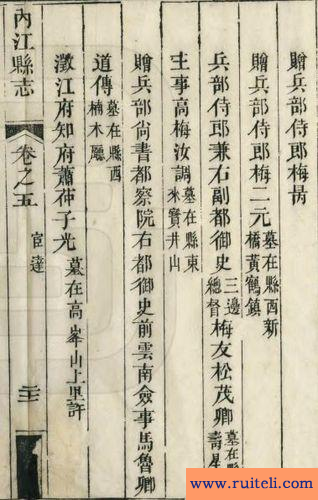 贈兵部侍郎梅
贈兵部侍郎梅二元墓在縣西新橋黃鶴鎮
兵部侍郎兼右副都御史三邊總督梅友松茂卿墓在縣壽星
主事高梅汝調墓在縣東米寶井山
贈兵部尚書都察院右都御史前雲南僉事馬魯卿
道傳墓在縣西楠木廳
澂江府知府蕭仲子光墓在高峯山上里許
內江縣志
卷之五
宦達
www.ruiteli.com